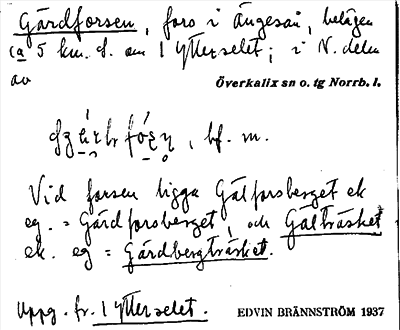 Gårdforsen, fors i Ängesån, belägen
ca 5 km. S. om 1 Ytterselet; i N. delen
av
Överkalix sn o. tg Norrb. l.
, bf. m.
Vid forsen ligga Gålforsberget ek
eg. = Gårdforsberget, och Gålträsket
ek. eg = Gårdbergträsket.
Uppg. fr. 1 Ytterselet.
EDVIN BRÄNNSTRÖM 1937